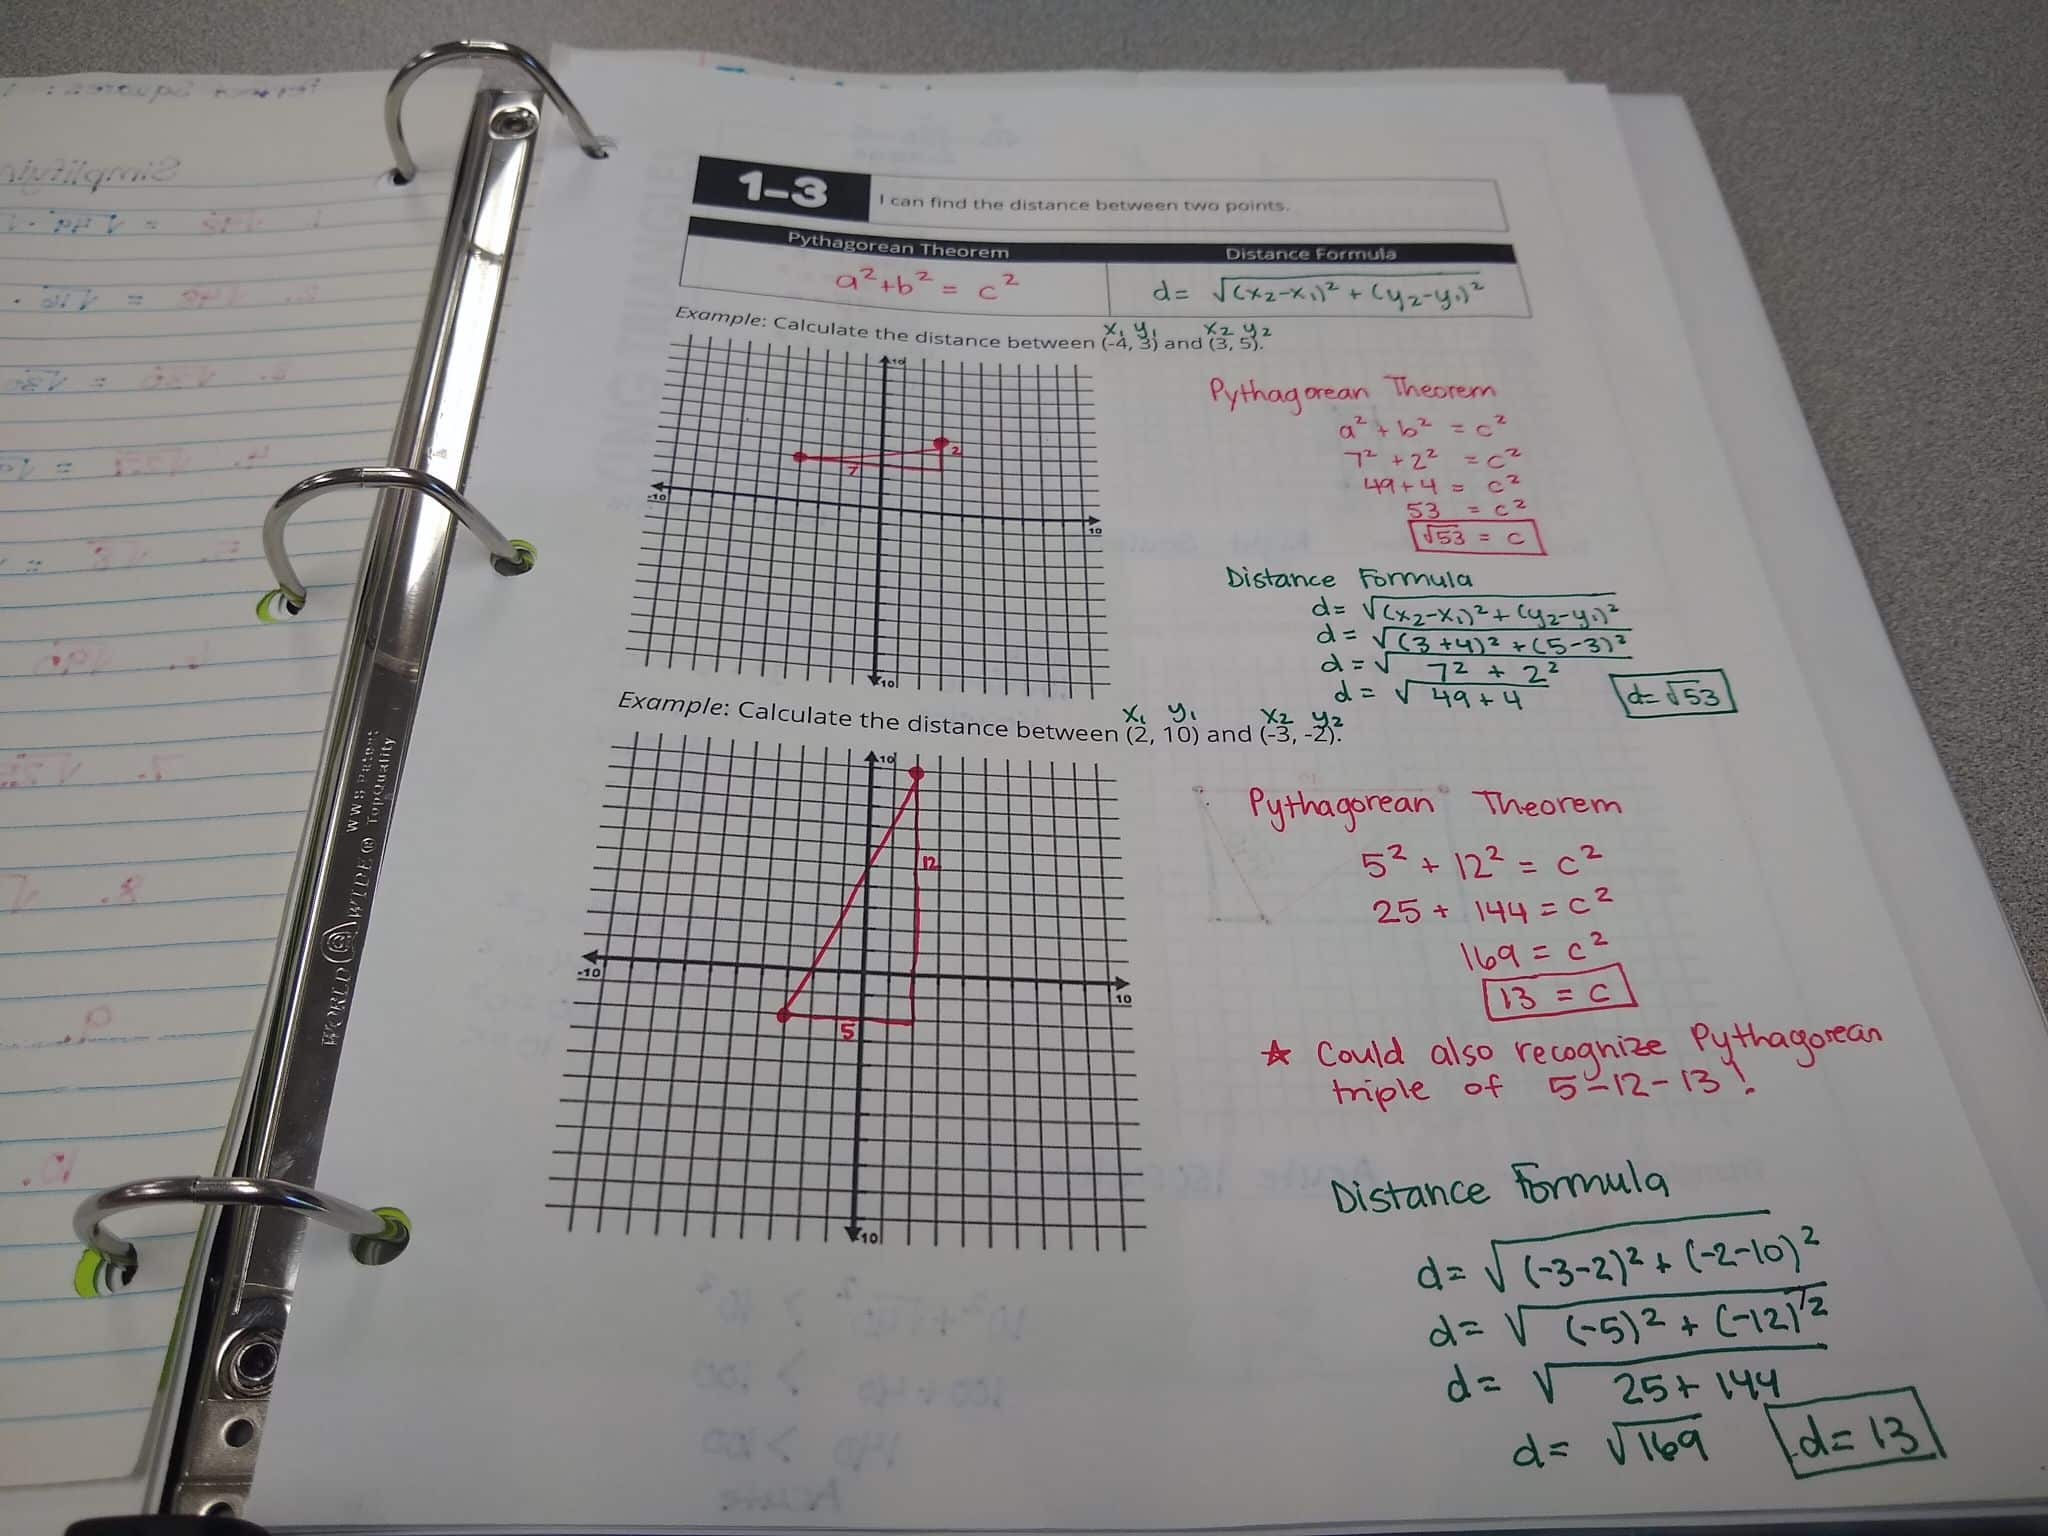 1-3
I can find the distance between two points.
Pythagorean Theorem
Distance Formula
a² + b² = c²
d = √(x₂-x₁)² + (y₂-y₁)²
Example: Calculate the distance between (-4, 3) and (3, 5).
x₁ y₁ x₂ y₂
10
-10
10
-10
7
2
Pythagorean Theorem
a² + b² = c²
7² + 2² = c²
49 + 4 = c²
53 = c²
√53 = c
Distance Formula
d = √(x₂-x₁)² + (y₂-y₁)²
d = √(3+4)² + (5-3)²
d = √7² + 2²
d = √49 + 4
d = √53
Example: Calculate the distance between (2, 10) and (-3, -2).
x₁ y₁ x₂ y₂
10
-10
10
-10
12
5
Pythagorean Theorem
5² + 12² = c²
25 + 144 = c²
169 = c²
13 = c
☆ Could also recognize Pythagorean
triple of 5-12-13!
Distance Formula
d = √(-3-2)² + (-2-10)²
d = √(-5)² + (-12)²
d = √25 + 144
d = √169
d = 13
WORLD WIDE ® WWS Patent
Top Quality